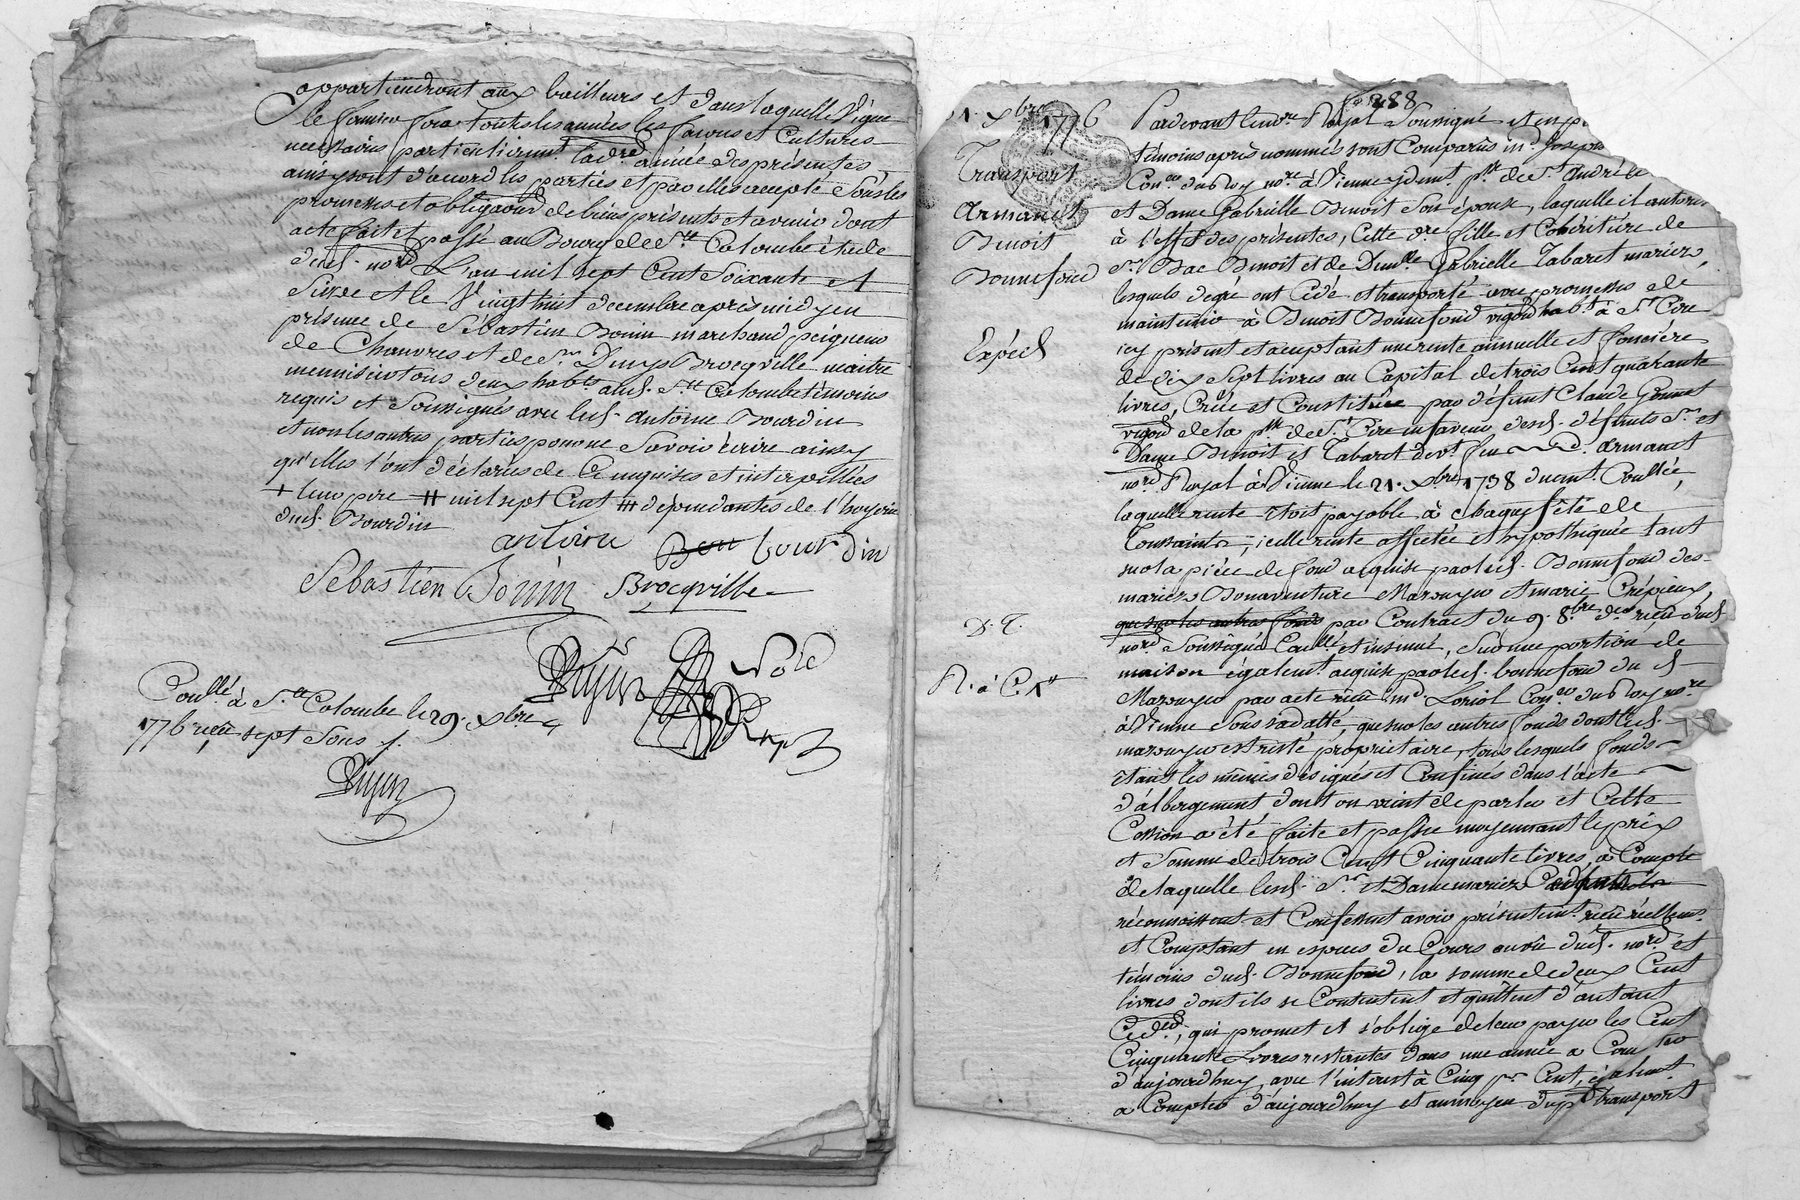 appartiendront aux bailleurs et dans laquelle vigne
le fermier fera toutes les années les façons et Cultures
necessaires particulieremt. lad. année des présentes,
ainsy sont d'accord les parties et par elles accepté, Sous les
promesses et obligaons de biens présents et avenir dont
acte fait et passé au Bourg de Ste Colombe étude
dud. nore L'an mil sept Cent Soixante et
Seize et le Vingt huit decembre après midy en
présence de Sébastien Bonin marchand peigneur
de Chanvres et de Sr. Denys Brocqville maitre
menuisier tous deux habts aud. Ste Colombe témoins
requis et Soussignés avec led. antoine Bourdin
et non les autres parties pour ne Savoir écrire ainsy
qu'elles l'ont déclaré de Ce enquises et interpellées
+ leur pere ++ mil sept Cent +++ dépendantes de l'hoyerie
dud. Bourdin
antoine Bou bourdin
Sebastien Bonin Brocqville
Nore
Coullé à Ste Colombe le 29. Xbre
1776 reçu sept Sous
fo 288
1. Xbre 1776
Transport
Armanet
Benoit
Bonnefond
Expéd
D. T.
R. à C. 1er
Pardevant le nore Royal Soussigné et en p
témoins après nommés sont Comparûs me. Joseph
Coner du Roy nore à Vienne y demt. psse de St. André le
et Dame Gabrielle Benoit Son épouse, laquelle il autorise
à l'effet des présentes, Cette dre fille et Cohéritière de
Sr. Bac Benoit et de Demlle Gabrielle Tabaret mariés,
lesquels degré ont Cédé et transporté avec promesses de
maintenir à Benoit Bonnefond vigon habt à St. Cire
icy présent et acceptant une rente annuelle et foncière
de dix Sept livres au Capital de trois Cent quarante
livres, Créée et Constituée par défunt Claude Gonnet
vigon de la psse de St. Cire en faveur desd. défunts Sr. et
Dame Benoit et Tabaret devt feu me. Armanet
nore Royal à Vienne le 21. Xbre 1738 duemt. Coullée,
laquelle rente étoit payable à chaque fête de
Toussaints, icelle rente affectée et hypothiquée tant
sur la pièce de fond acquise par led. Bonnefond des
mariés Bonaventure Marouyer et marie Crépieux,
que sur les autres fonds par Contract du 9. 8bre der reçu dud
nore Soussigné Coullé et insinué, Sur une portion de
maison également acquise par led. bonnefond du d
Marouyer par acte reçu me. Loriol Coner du Roy nore
à Vienne Sous sa datte, que sur les autres fonds dont led.
marouyer est resté propriétaire, tous lesquels fonds
étant les mêmes désignés et Confinés dans l'acte
d'albergement dont on vient de parler et Cette
Cession a été faite et passée moyennant le prix
et Somme de trois Cent Cinquante livres, à Compte
de laquelle lesd. Sr et Dame mariés
réconnoissent et Confessent avoir présentemt. reçu réellemt.
et Comptant en espèces du Cours au vû dud. nore et
témoins dud. Bonnefond, la somme de deux Cent
livres dont ils se Contentent et quittent d'autant
, qui promet et s'oblige de leur payer les Cent
Cinquante Livres restantes dans une année a Compter
d'aujourdhuy, avec l'intérest à Cinq pr Cent, égalemt.
a Compter d'aujourdhuy et au moyen dupt transport